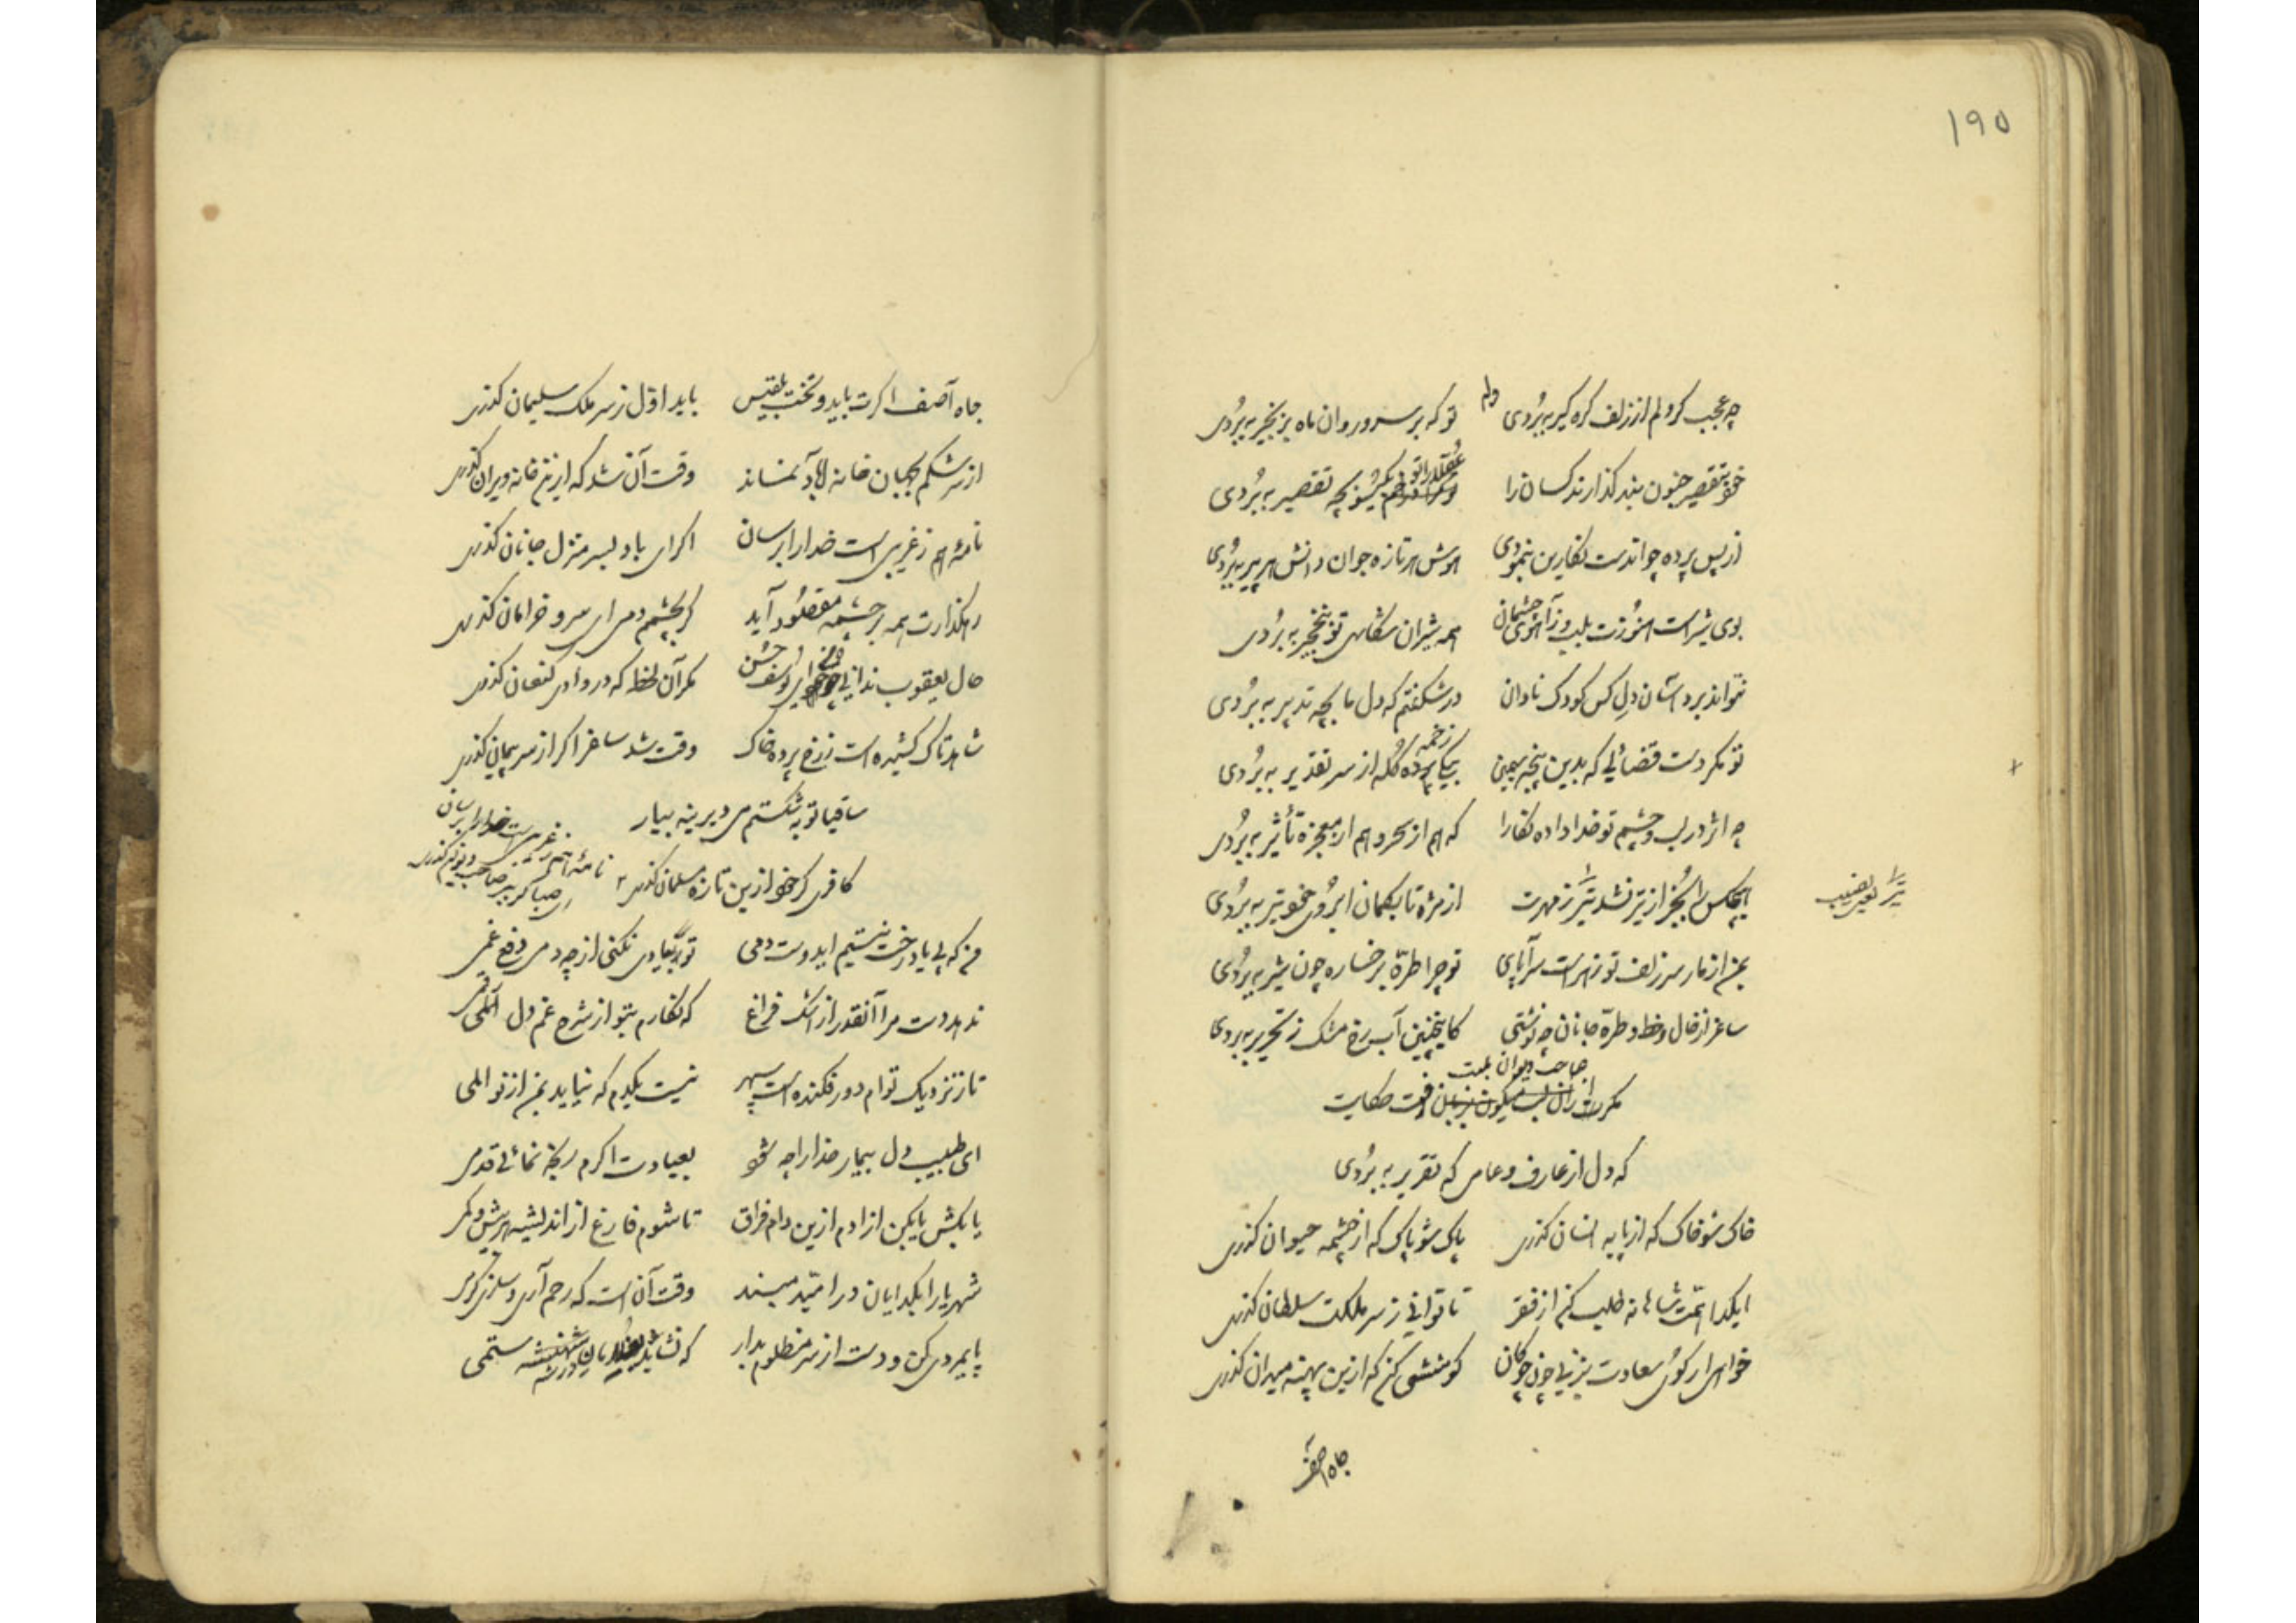 ۱۹۵
چه عجب گر دلم از زلف گره گیر ببردی تو که بر سرو روان ماه بزنجیر ببردی
وله
خود بتقصیر جنون بند گذارند کسان را تو بچه تقصیر ببردی
از پس پرده چو اندست نگارین بنمودی هوش هر تازه جوان دانش هر پیر ببردی
بوی شیر است هنوزت بلب وز آهوی چشمان همه شیران شکاری تو بنخجیر ببردی
نتواند برد آسان دل کس کودک نادان در شگفتم که دل ما بچه تدبیر ببردی
تو مگر دست قضائی که بدین پنجه سیمین بیکی زخمه کله از سر تقدیر ببردی
چه اثر در لب و چشم تو خدا داده نگارا که هم از سحر و هم از معجزه تأثیر ببردی
هیچکس را بجز از تیر نشد تیر ز مهرت از مژه تا بکمان ابروی خود تیر ببردی
تیر را نصیب
بمن از مار سر زلف تو زهر است سراپای تو چرا طره بر خساره چون شیر ببردی
ساغر از خال و خط و طره جانان چه نوشتی کاینچنین آب رخ مشک ز تحریر ببردی
صاحب دیوان بلبت
مگرت رفت حکایت
که دل از عارف و عامی که تقریر ببردی
خاک شو خاک که از پایه انسان گذری پاک شو پاک که از چشمه حیوان گذری
ایگدا همت شاهانه طلب کن از فقر تا توانی ز سر ملکت سلطان گذری
خواهی ار گوی سعادت بزنی چون چوگان کوششی کن که ازین پهنه میدان گذری
جاه آصف
جاه آصف اگرت باید و تخت بلقیس باید اول ز سر ملک سلیمان گذری
از سرشکم بجهان خانه آباد نماند وقت آن شد که ازین خانه ویران گذری
نامه ام ز غریبی است خدا را برسان اگر ای باد بسر منزل جانان گذری
رهگذارت همه بر چشمه مقصود آید گر بچشمم دمی ای سرو خرامان گذری
حال یعقوب ندانی ای یوسف حسن مگر آن لحظه که در وادی کنعان گذری
شاهد تاک کشیده است ز رخ پرده خاک وقت شد ساغر اگر از سر پیمان گذری
ساقیا توبه شکستم می دیرینه بیار
کافری گر خود ازین تازه مسلمان گذری
نامه ام ز غریبی است خدا را برسان
ای صبا گر بر صاحب گذری
من که بی یاد رخت نیستم ایدوست دمی تو بیادی نکنی از چه دمی دفع غمی
ندهد دست مرا آنقدر از اشک فراغ که نگارم بتو از شرح غم دل رقمی
تا ز نزدیک توام دور فکنده است سپهر نیست یکدم که نیاید بمن از نو المی
ای طبیب دل بیمار خدا را چه شود بعیادت اگرم رنجه نمائی قدمی
یا بکش یا بکن ازادم ازین دام فراق تا شوم فارغ از اندیشه هر بیش و کمی
شهریارا بگدایان در امید مبند وقت آن است که رحم آری و سازی کرمی
پایمردی کن و دست از سر مظلوم بدار که نشاید ستمی